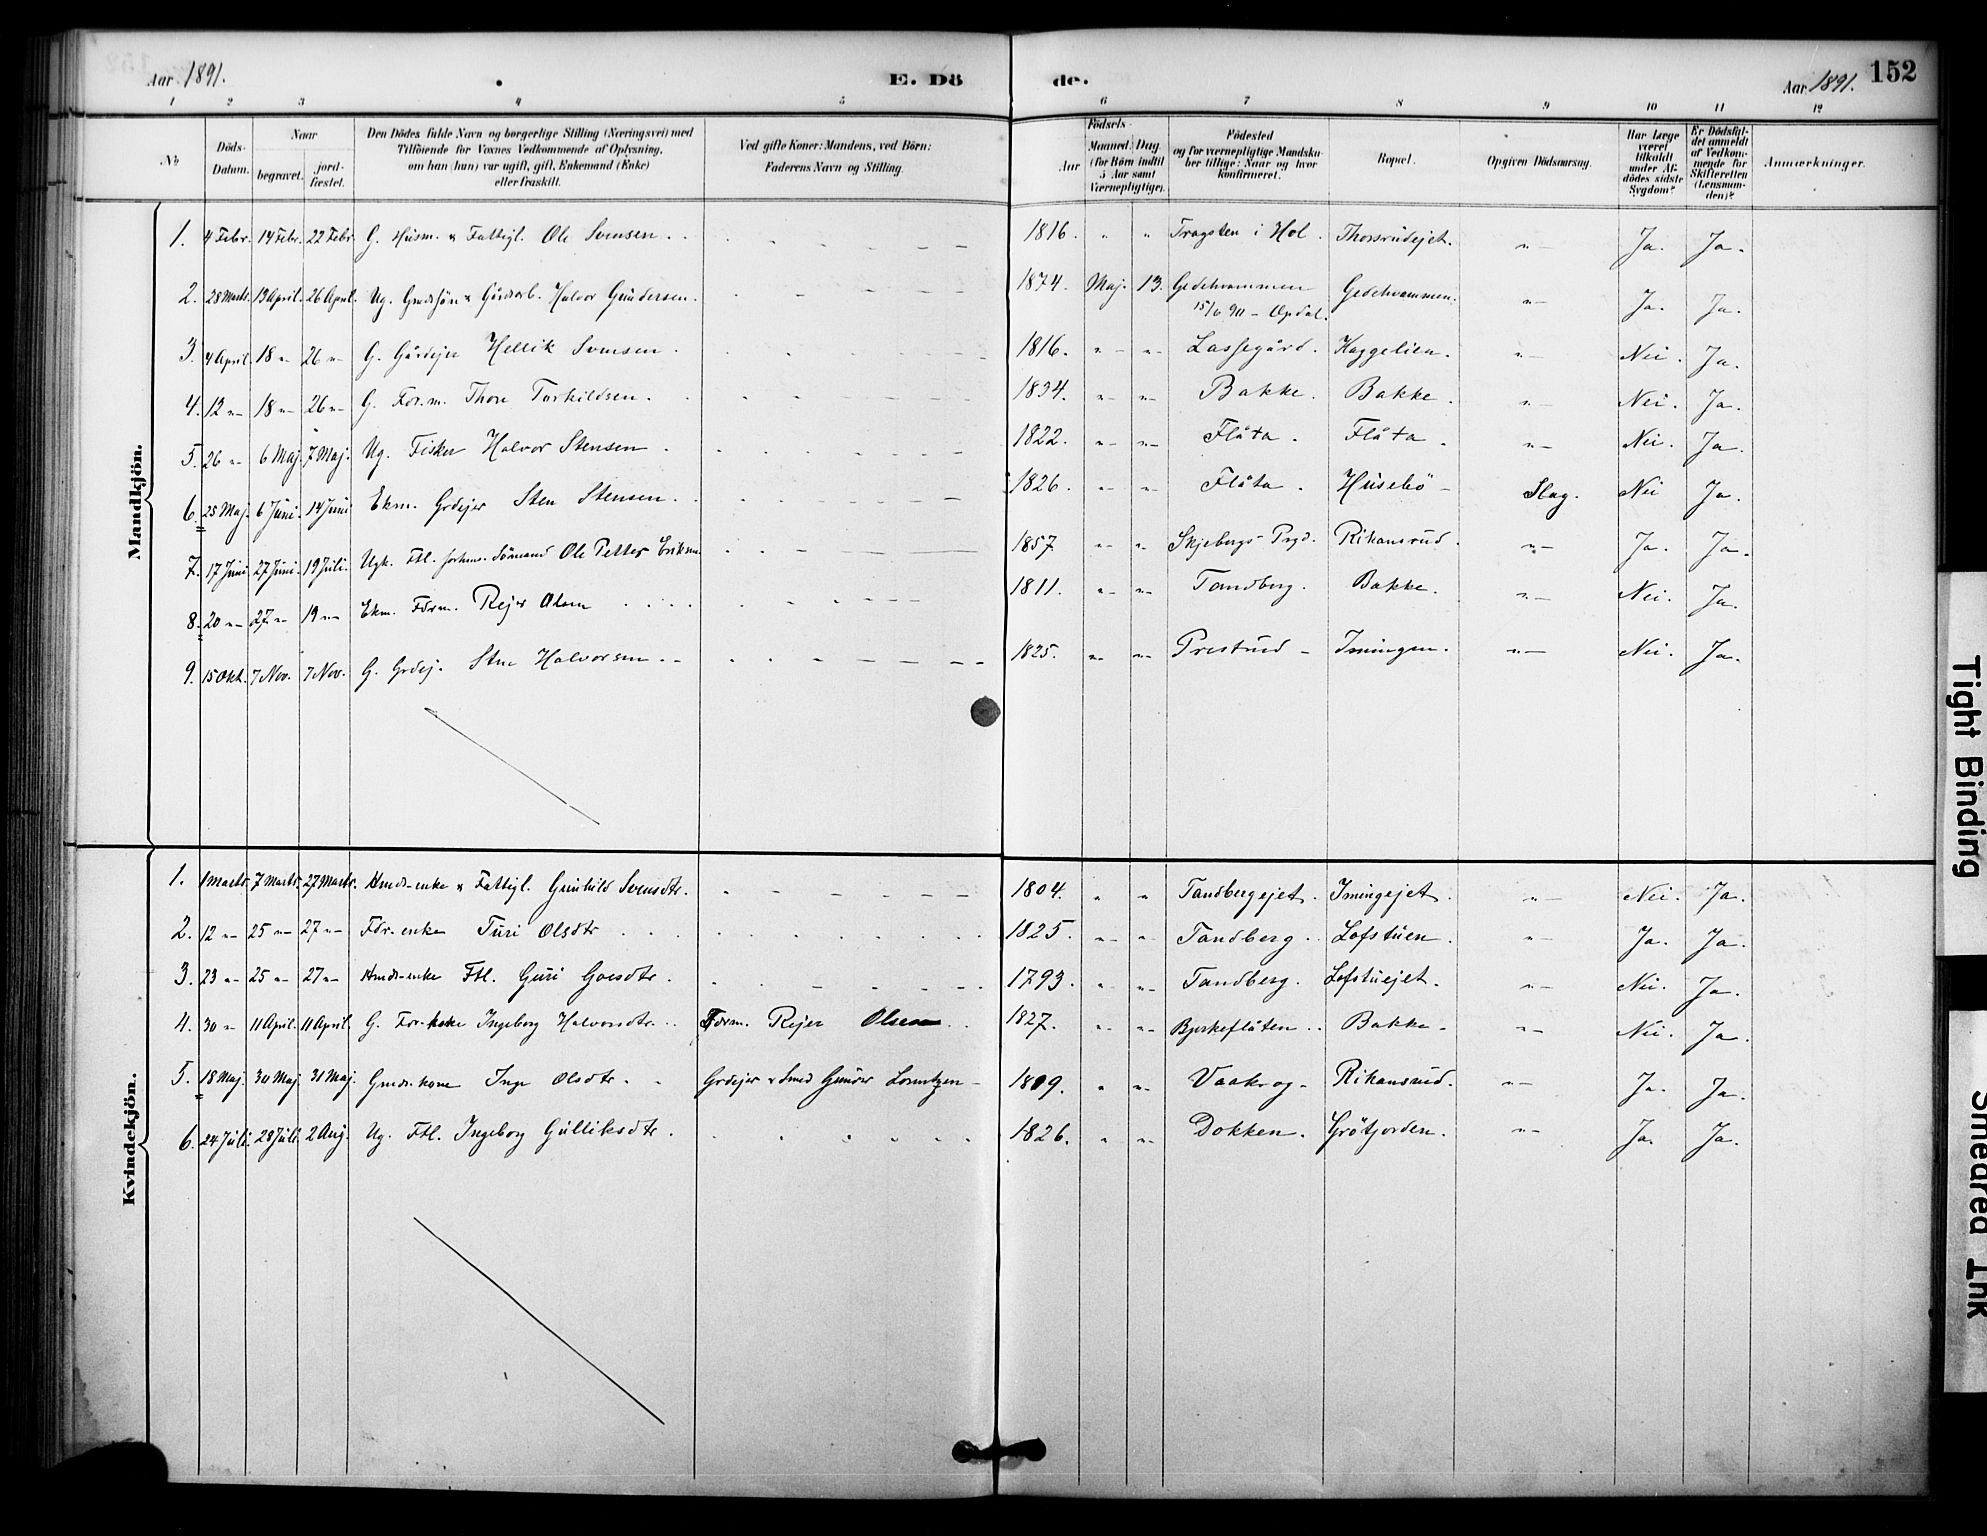 Aar 1891. E. Dö de. Aar 1891. 152
1 2 3 4 5 6 7 8 9 10 11 12
No
Döds-Datum.
Naar
begravet. jordfæstet.
Den Dödes fulde Navn og borgerlige Stilling (Næringsvei) med
Tilföiende for Voxnes Vedkommende af Oplysning,
om han (hun) var ugift, gift, Enkemand (Enke)
eller fraskilt.
Ved gifte Koner: Mandens, ved Börn:
Faderens Navn og Stilling.
Födsels-
Aar Maaned. Dag
(for Börn indtil
5 Aar samt
Værnepligtige).
Födested
og for værnepligtige Mandska-
ber tillige: Naar og hvor
konfirmeret.
Bopæl.
Opgiven Dödsaarsag.
Har Læge
været
tilkaldt
under Af-
dödes sidste
Sygdom?
Er Dödsfal-
det anmeldt
af Vedkom-
mende for
Skifteretten
(Lensman-
den)?
Anmærkninger.
Mandkjön.
1. 4 Febr. 14 Febr. 22 Febr. G. Husm. & Fattigl. Ole Svensen. 1816. " " Tragsten i Hol. Thorsrudejet. "— Ja. Ja.
2. 28 Marts. 19 April. 26 April. Ug. Gmdssön & Gårdarb. Halvor Gundersen. 1874. Maj. 13. Gedehvammen Gedehvammen. "— Ja. Ja.
15/6 90 – Opdal.
3. 4 April 18 "— 26 "— G. Gårdejer Hellik Svensen. 1816. "— "— Lassegård. Haggelien. "— Nei. Ja.
4. 12 "— 18 "— 26 "— G. Form. Thore Torkildsen. 1834. "— "— Bakke. Bakke. "— Nei. Ja.
5. 26 "— 6 Maj. 7 Maj. Ug. Fisker Halvor Stensen 1822. "— "— Flåta. Flåta. "— Nei. Ja.
6. 25 Maj. 6 Juni. 14 Juni Ekm. Grdejer Sten Stensen. 1826. "— "— Flåta. Husebö – Slag. Nei Ja.
7. 17 Juni 27 Juni. 19 Juli. Ugk. Ftl. forhens. Sömand Ole Petter Eriksen 1857 "— "— Skjebergs – Prgd. Rikansrud. "— Ja. Ja.
8. 20 "— 27 "— 19 "— Ekm. Form. Rejer Olsen 1811. "— "— Tandberg. Bakke. "— Nei. Ja.
9. 15 Okt. 7 Nov. 7 Nov. G. Grdej. Sten Halvorsen 1825. "— "— Prestrud – Imingen. "— Nei. Ja.
Kvindekjön.
1. 1 Marts. 7 Marts. 27 Marts. Hmds-enke & Fattigl. Gunhild Svensdtr. 1804. " " Tandbergejet. Imingejet. "— Nei. Ja.
2. 12 "— 25 "— 27 "— Fdr-enke Turi Olsdtr 1825. "— "— Tandberg. Lofstuen. "— Ja. Ja.
3. 23 "— 25 "— 27 "— Hmds-enke Ftl. Guri Goesdtr. 1793. " "— Tandberg. Lofstuejet. "— Nei. Ja.
4. 30 "— 11 April. 11 April. G. For-kone Ingeborg Halvorsdtr. Form. Rejer Olsen 1827. "— "— Bjerkeflåten. Bakke. "— Nei. Ja.
5. 18 Maj. 30 Maj 31 Maj. Gmds-kone Inge Olsdtr. Grdejer & Smed Gunder Lorentzen – 1809. " "— Vaakrog – Rikansrud. "— Ja. Ja.
6. 24 Juli. 28 Juli. 2 Aug. Ug. Ftl. Ingeborg Gulliksdtr. 1826. " "— Dokken. Grötjorden. "— Ja. Ja.
Tight Binding
Smeared Ink